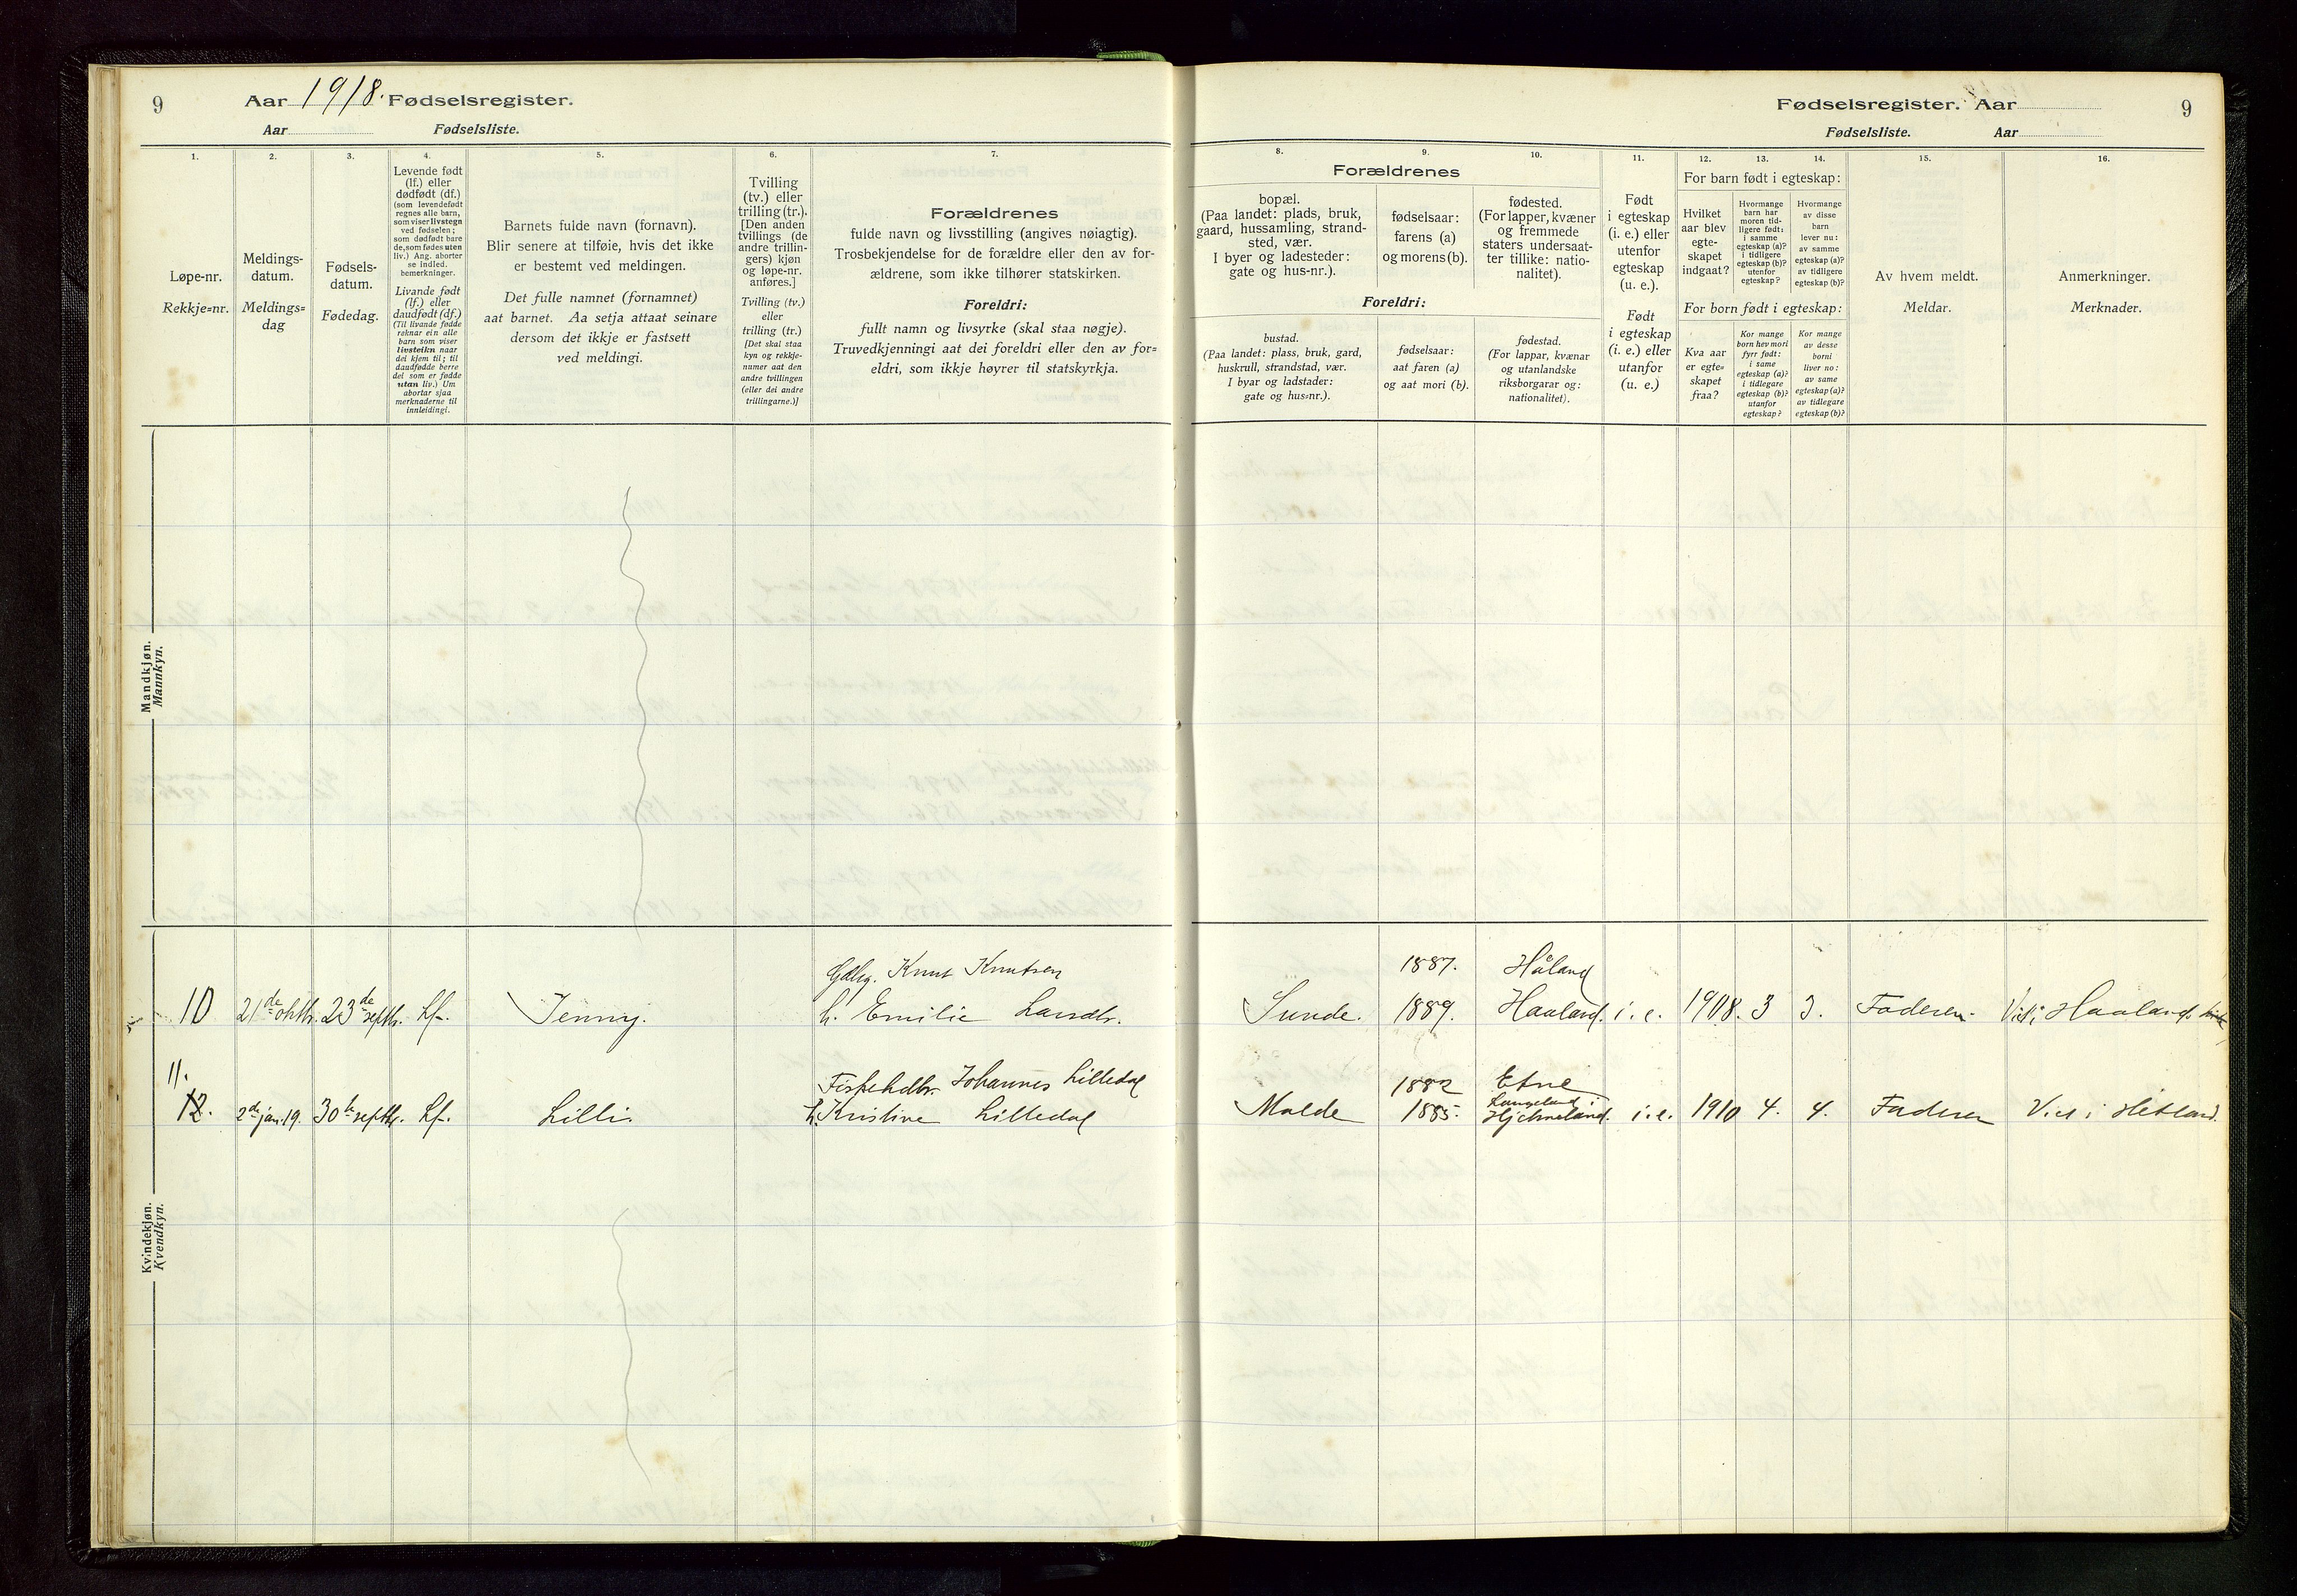 9
Aar 1918. Fødselsregister.
Aar Fødselsliste.
1.
Løpe-nr.
Rekkje=nr.
2.
Meldings-
datum.
Meldings=
dag
3.
Fødsels-
datum.
Fødedag.
4.
Levende født
(lf.) eller
dødfødt (df.)
(som levendefødt
regnes alle barn,
som viser livstegn
ved fødselen;
som dødfødt bare
de, som fødes uten
liv.) Ang. aborter
se indled.
bemerkninger.
Livande født
(lf.) eller
daudfødt (df.)
(Til livande fødde
reknar ein alle
barn som viser
livsteikn naar
dei kjem til; til
daudfødde berre
dei som er fødde
utan liv.) Um
abortar sjaa
merknaderne til
innleidingi.
5.
Barnets fulde navn (fornavn).
Blir senere at tilføie, hvis det ikke
er bestemt ved meldingen.
Det fulle namnet (fornamnet)
aat barnet. Aa setja attaat seinare
dersom det ikkje er fastsett
ved meldingi.
6.
Tvilling
(tv.) eller
trilling (tr.).
[Den anden
tvillings (de
andre trillin-
gers) kjøn
og løpe-nr.
anføres.]
Tvilling (tv.)
eller
trilling (tr.)
[Det skal staa
kyn og rekkje-
numer aat den
andre tvillingen
(eller dei andre
trillingarne.)]
7.
Forældrenes
fulde navn og livsstilling (angives nøiagtig).
Trosbekjendelse for de forældre eller den av for-
ældrene, som ikke tilhører statskirken.
Foreldri:
fullt namn og livsyrke (skal staa nøgje).
Truvedkjenningi aat dei foreldri eller den av for=
eldri, som ikkje høyrer til statskyrkja.
Mandkjøn.
Mannkyn.
Gdbg. Knut Knutsen
10 21de oktb. 23de septb. Lf. Jenny. h. Emilie Larsdtr.
11.
Fiskehdlr. Johannes Lilledal
12. 2de jan. 19. 30te septb. Lf. Lilli. h. Kristine Lilledal
Kvindekjøn.
Kvendkyn.
Fødselsregister. Aar
9
Fødselsliste. Aar
8. 9. 10.
Forældrenes
bopæl.
(Paa landet: plads, bruk,
gaard, hussamling, strand-
sted, vær.
I byer og ladesteder:
gate og hus-nr.).
fødselsaar:
farens (a)
og morens (b).
fødested.
(For lapper, kvæner
og fremmede
staters undersaat-
ter tillike: natio-
nalitet).
Foreldri:
bustad.
(Paa landet: plass, bruk, gard,
huskrull, strandstad, vær.
I byar og ladstader:
gate og hus=nr.).
fødselsaar:
aat faren (a)
og aat mori (b).
fødestad.
(For lappar, kvænar
og utanlandske
riksborgarar og:
nationalitet).
11.
Født
i egteskap
(i. e.) eller
utenfor
egteskap
(u. e.).
Født
i egteskap
(i. e.) eller
utanfor
(u. e.)
12. 13. 14.
For barn født i egteskap:
Hvilket
aar blev
egte-
skapet
indgaat?
Hvormange
barn har
moren tid-
ligere født:
i samme
egteskap (a)?
i tidligere
egteskap (b)?
utenfor
egteskap?
Hvormange
av disse
barn
lever nu:
av samme
egteskap (a)?
av tidligere
egteskap (b)?
For born født i egteskap:
Kva aar
er egte=
skapet
fraa?
Kor mange
born hev mori
fyrr født:
i same
egteskap (a)?
i tidlegare
egteskap (b)?
utanfor
egteskap?
Kor mange
av desse
borni
liver no:
av same
egteskap (a)?
av tidlegare
egteskap (b)?
15.
Av hvem meldt.
Meldar.
16.
Anmerkninger.
Merknader.
1887. Håland
Sunde. 1889. Haaland. i. e. 1908. 3 3. Faderen. Viet i Haaland
1882 Etne
Langeland i
Malde 1885. Hjelmeland. i. e. 1910 4. 4. Faderen Viet i Hetland.